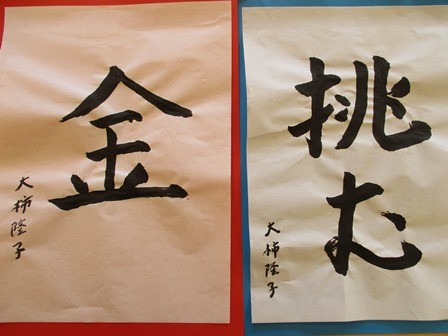 金
大柿隆子
挑む
大柿隆子